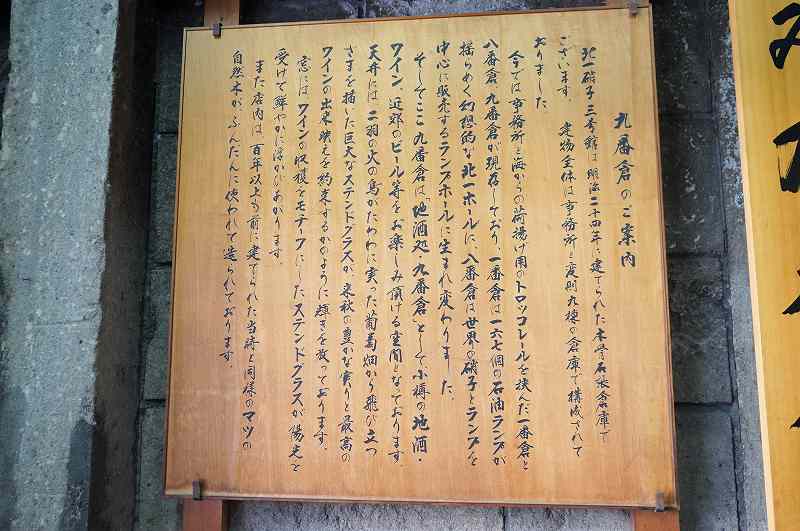 九番倉のご案内
北一硝子三号館は明治二十四年に建てられた木骨石張倉庫で
ございます。 建物全体は事務所と変則九棟の倉庫で構成されて
おりました。
今では事務所と海からの荷揚げ用のトロッコレールを挟んだ一番倉と
八番倉、九番倉が現存しており、一番倉は一六七個の石油ランプが
揺らめく幻想的な北一ホールに、八番倉は世界の硝子とランプを
中心に販売するランプホールに生まれ変わりました。
そしてここ九番倉は「地酒処・九番倉」として小樽の地酒・
ワイン、近郊のビール等をお楽しみ頂ける空間となっております
天井には、二羽の火の鳥がたわわに実った葡萄畑から飛び立つ
さまを描いた巨大なステンドグラスが、来秋の豊かな実りと最高の
ワインの出来映えを約束するかのように輝きを放っております。
窓にはワインの収穫をモチーフにしたステンドグラスが陽光を
受けて鮮やかに浮かびあがります。
また店内は、百年以上も前に建てられた当時と同様のマツの
自然木がふんだんに使われて造られております。